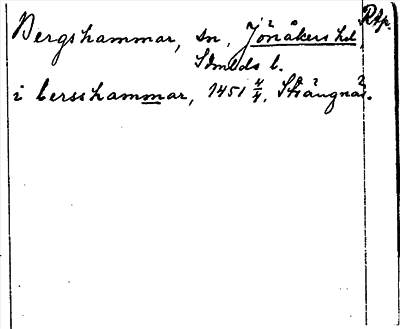 Bergshammar, sn, Jönåkers hd Rtp.
Sdmlds l.
i bersshammar, 1451 4/4, Strängnäs.